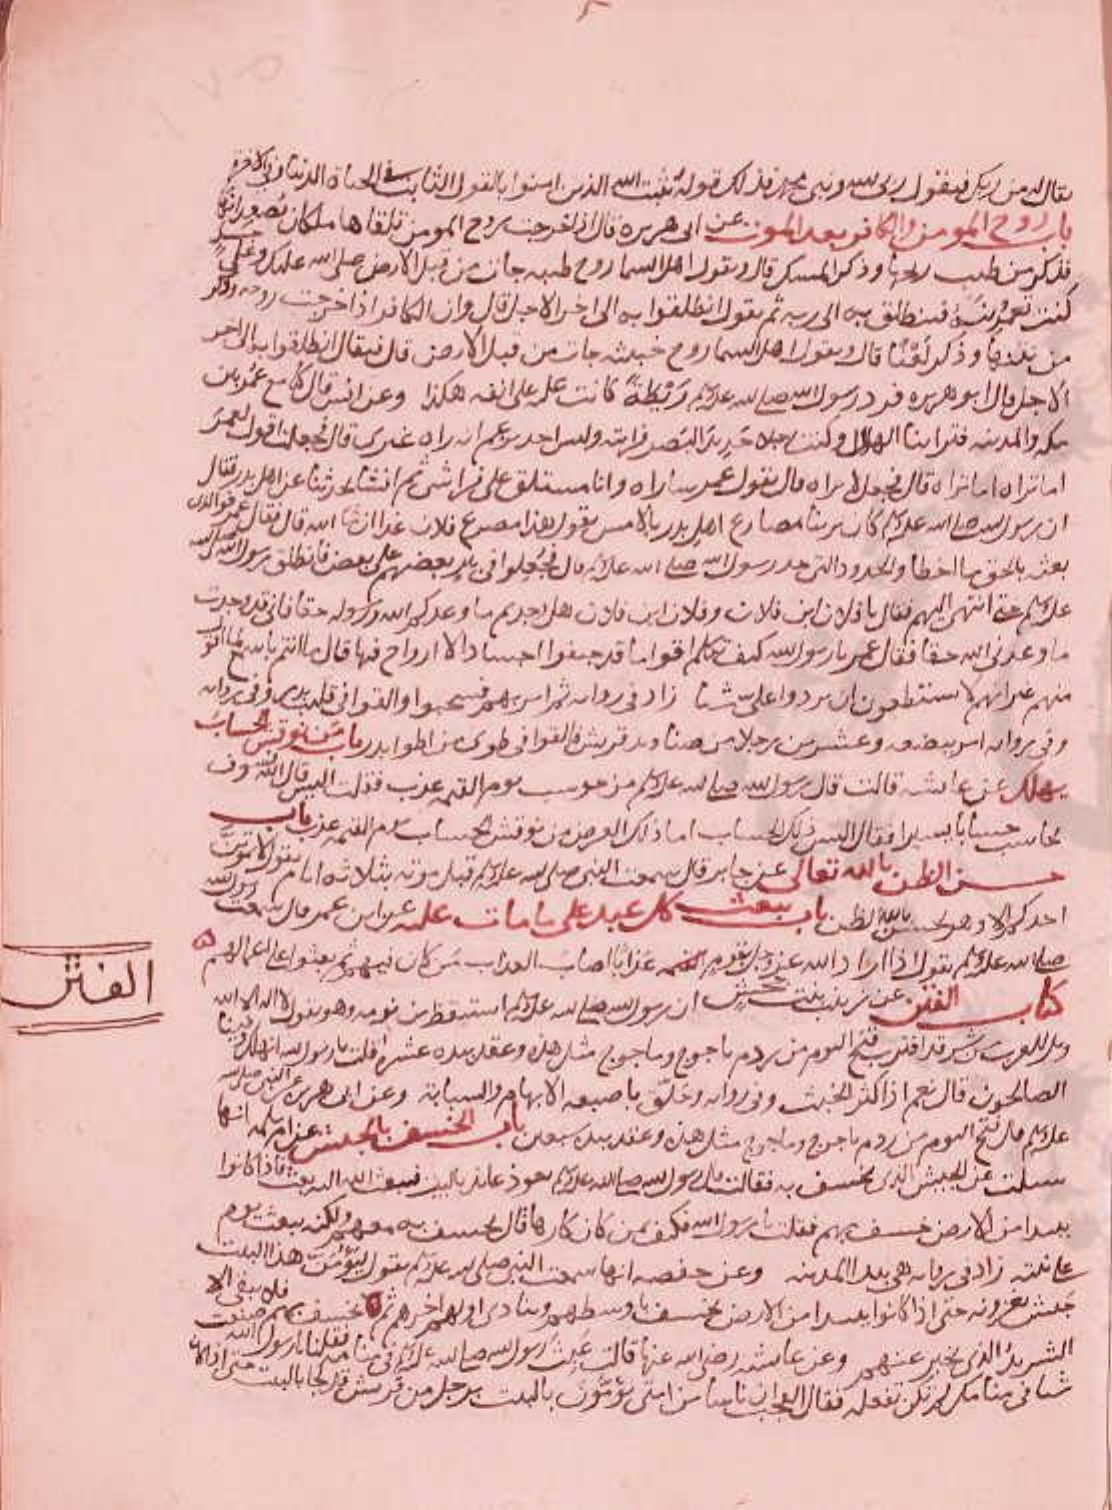 يقال له من ربك فيقول ربي الله ونبيي محمد فذلك قوله يثبت الله الذين امنوا بالقول الثابت في الحياة الدنيا وفي الاخرة
باب روح المومن والكافر بعد الموت عن ابي هريرة قال اذا خرجت روح المومن تلقاها ملكان يصعدانها
فذكر من طيب ريحها وذكر المسك قال ويقول اهل السما روح طيبة جات من قبل الارض صلى الله عليك وعلى جسد
كنت تعمرينه فينطلق به الى ربه ثم يقول انطلقوا به الى اخر الاجل قال وان الكافر اذا خرجت روحه وذكر
من نتنها وذكر لعنا قال ويقول اهل السما روح خبيثة جات من قبل الارض قال فيقال انطلقوا به الى اخر
الاجل قال ابو هريرة فرد رسول الله صلى الله عليه وسلم ريطة كانت عليه على انفه هكذا وعن انس قال كنا مع عمر بين
مكة والمدينة فتراينا الهلال وكنت رجلا حديد البصر فرايته وليس احد يزعم انه راه غيري قال فجعلت اقول لعمر
اما تراه اما تراه قال فجعل لا يراه قال يقول عمر ساراه وانا مستلق على فراشي ثم انشا يحدثنا عن اهل بدر فقال
ان رسول الله صلى الله عليه وسلم كان يرينا مصارع اهل بدر بالامس يقول هذا مصرع فلان غدا ان شا الله قال فقال عمر فوالذي
بعثه بالحق ما اخطاوا الحدود التي حد رسول الله صلى الله عليه وسلم قال فجعلوا في بير بعضهم على بعض فانطلق رسول الله صلى الله
عليه وسلم حتى انتهى اليهم فقال يا فلان ابن فلان وفلان ابن فلان هل وجدتم ما وعدكم الله ورسوله حقا فاني قد وجدت
ما وعدني الله حقا فقال عمر يا رسول الله كيف تكلم اقواما قد جيفوا اجسادا لا ارواح فيها قال ما انتم باسمع لما اقول
منهم غير انهم لا يستطيعون ان يردوا علي شيا زاد في رواية ثم امر بهم فسحبوا والقوا في قليب بدر وفي رواية
وفي رواية امر ببضعة وعشرين رجلا من صناديد قريش فالقوا في طوي من اطوا بدر باب من نوقش الحساب
يهلك عن عايشة قالت قال رسول الله صلى الله عليه وسلم من حوسب يوم القيمة عذب فقلت اليس قال الله فسوف
يحاسب حسابا يسيرا فقال ليس ذلك الحساب انما ذلك العرض من نوقش الحساب يوم القيمة عذب باب
حسن الظن بالله تعالى عن جابر قال سمعت النبي صلى الله عليه وسلم قبل موته بثلاثة ايام يقول لا يموتن
احدكم الا وهو يحسن بالله الظن باب يبعث كل عبد على ما مات عليه عن ابن عمر قال سمعت رسول الله
صلى الله عليه وسلم يقول اذا اراد الله عز وجل بقوم عذابا اصاب العذاب من كان فيهم ثم بعثوا على اعمالهم
كتاب الفتن عن زينب بنت جحش ان رسول الله صلى الله عليه وسلم استيقظ من نومه وهو يقول لا اله الا الله
ويل للعرب من شر قد اقترب فتح اليوم من ردم ياجوج وماجوج مثل هذه وعقد بيده عشرة قلت يا رسول الله انهلك وفينا
الصالحون قال نعم اذا كثر الخبث وفي رواية وحلق باصبعه الابهام والسبابة وعن ابي هريرة عن النبي صلى الله
عليه وسلم قال فتح اليوم من ردم ياجوج وماجوج مثل هذه وعقد بيده تسعين باب الخسف بالجيش عن ام سلمة انها
سيلت عن الجيش الذي يخسف به فقالت قال رسول الله صلى الله عليه وسلم يعوذ عايذ بالبيت فيبعث الله اليه بعثا فاذا كانوا
ببيدا من الارض خسف بهم فقلت يا رسول الله فكيف بمن كان كارها قال يخسف به معهم ولكنه يبعث يوم
على نيته زاد في رواية هي بيدا المدينة وعن حفصة انها سمعت النبي صلى الله عليه وسلم يقول ليؤمن هذا البيت
جيش يغزونه حتى اذا كانوا ببيدا من الارض يخسف باوسطهم وينادي اولهم اخرهم ثم يخسف بهم فلا يبقى الا
الشريد الذي يخبر عنهم وعن عايشة رضي الله عنها قالت عبث رسول الله صلى الله عليه وسلم في منامه فقلنا يا رسول الله صنعت
شيا في منامك لم تكن تفعله فقال العجب ان ناسا من امتي يؤمون بالبيت برجل من قريش قد لجا بالبيت حتى اذا كانوا
الفتن